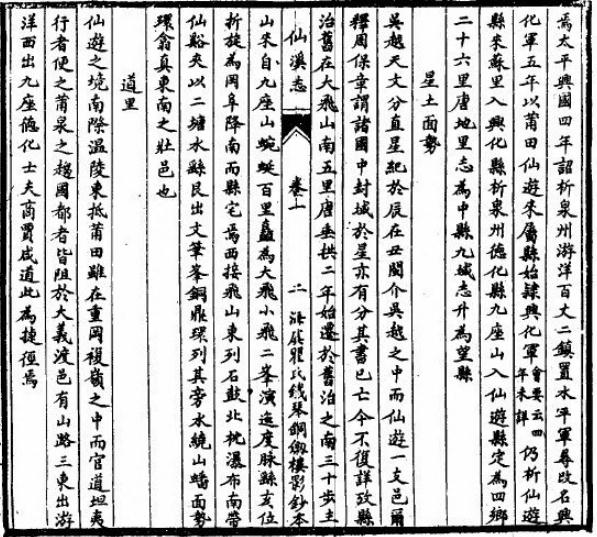 焉太平興國四年詔析泉州游洋百丈二鎮置水平軍尋改名興
化軍五年以莆田仙遊來屬縣始隷興化軍會要云四年未詳仍析仙遊
縣來蘇里入興化縣析泉州德化縣九座山入仙遊縣定為四鄉
二十六里唐地里志為中縣九域志升為望縣
星土面勢
吳越天文分直星紀於辰在丑閩介吳越之中而仙遊一支邑爾
釋周保章謂諸國中封域於星亦有分其書已亡今不復詳攷縣
治舊在大飛山南五里唐垂拱二年始遷於舊治之南三十步主
仙溪志
卷一
二
海虞瞿氏鐵琴銅劍樓影鈔本
山來自九座山蜿蜒百里矗為大飛小飛二峯演迤度脉縣亥位
折旋為岡阜降南而縣宅焉西接飛山東列石鼓北枕瀑布南帶
仙谿夾以二塘水繇艮出文筆峯銅鼎環列其旁水繞山蟠面勢
環翕真東南之壯邑也
道里
仙遊之境南際溫陵東抵莆田雖在重岡複嶺之中而官道坦夷
行者便之莆泉之趨國都者皆阻於大義渡邑有山路三東出游
洋西出九座德化士夫商賈咸道此為捷徑焉